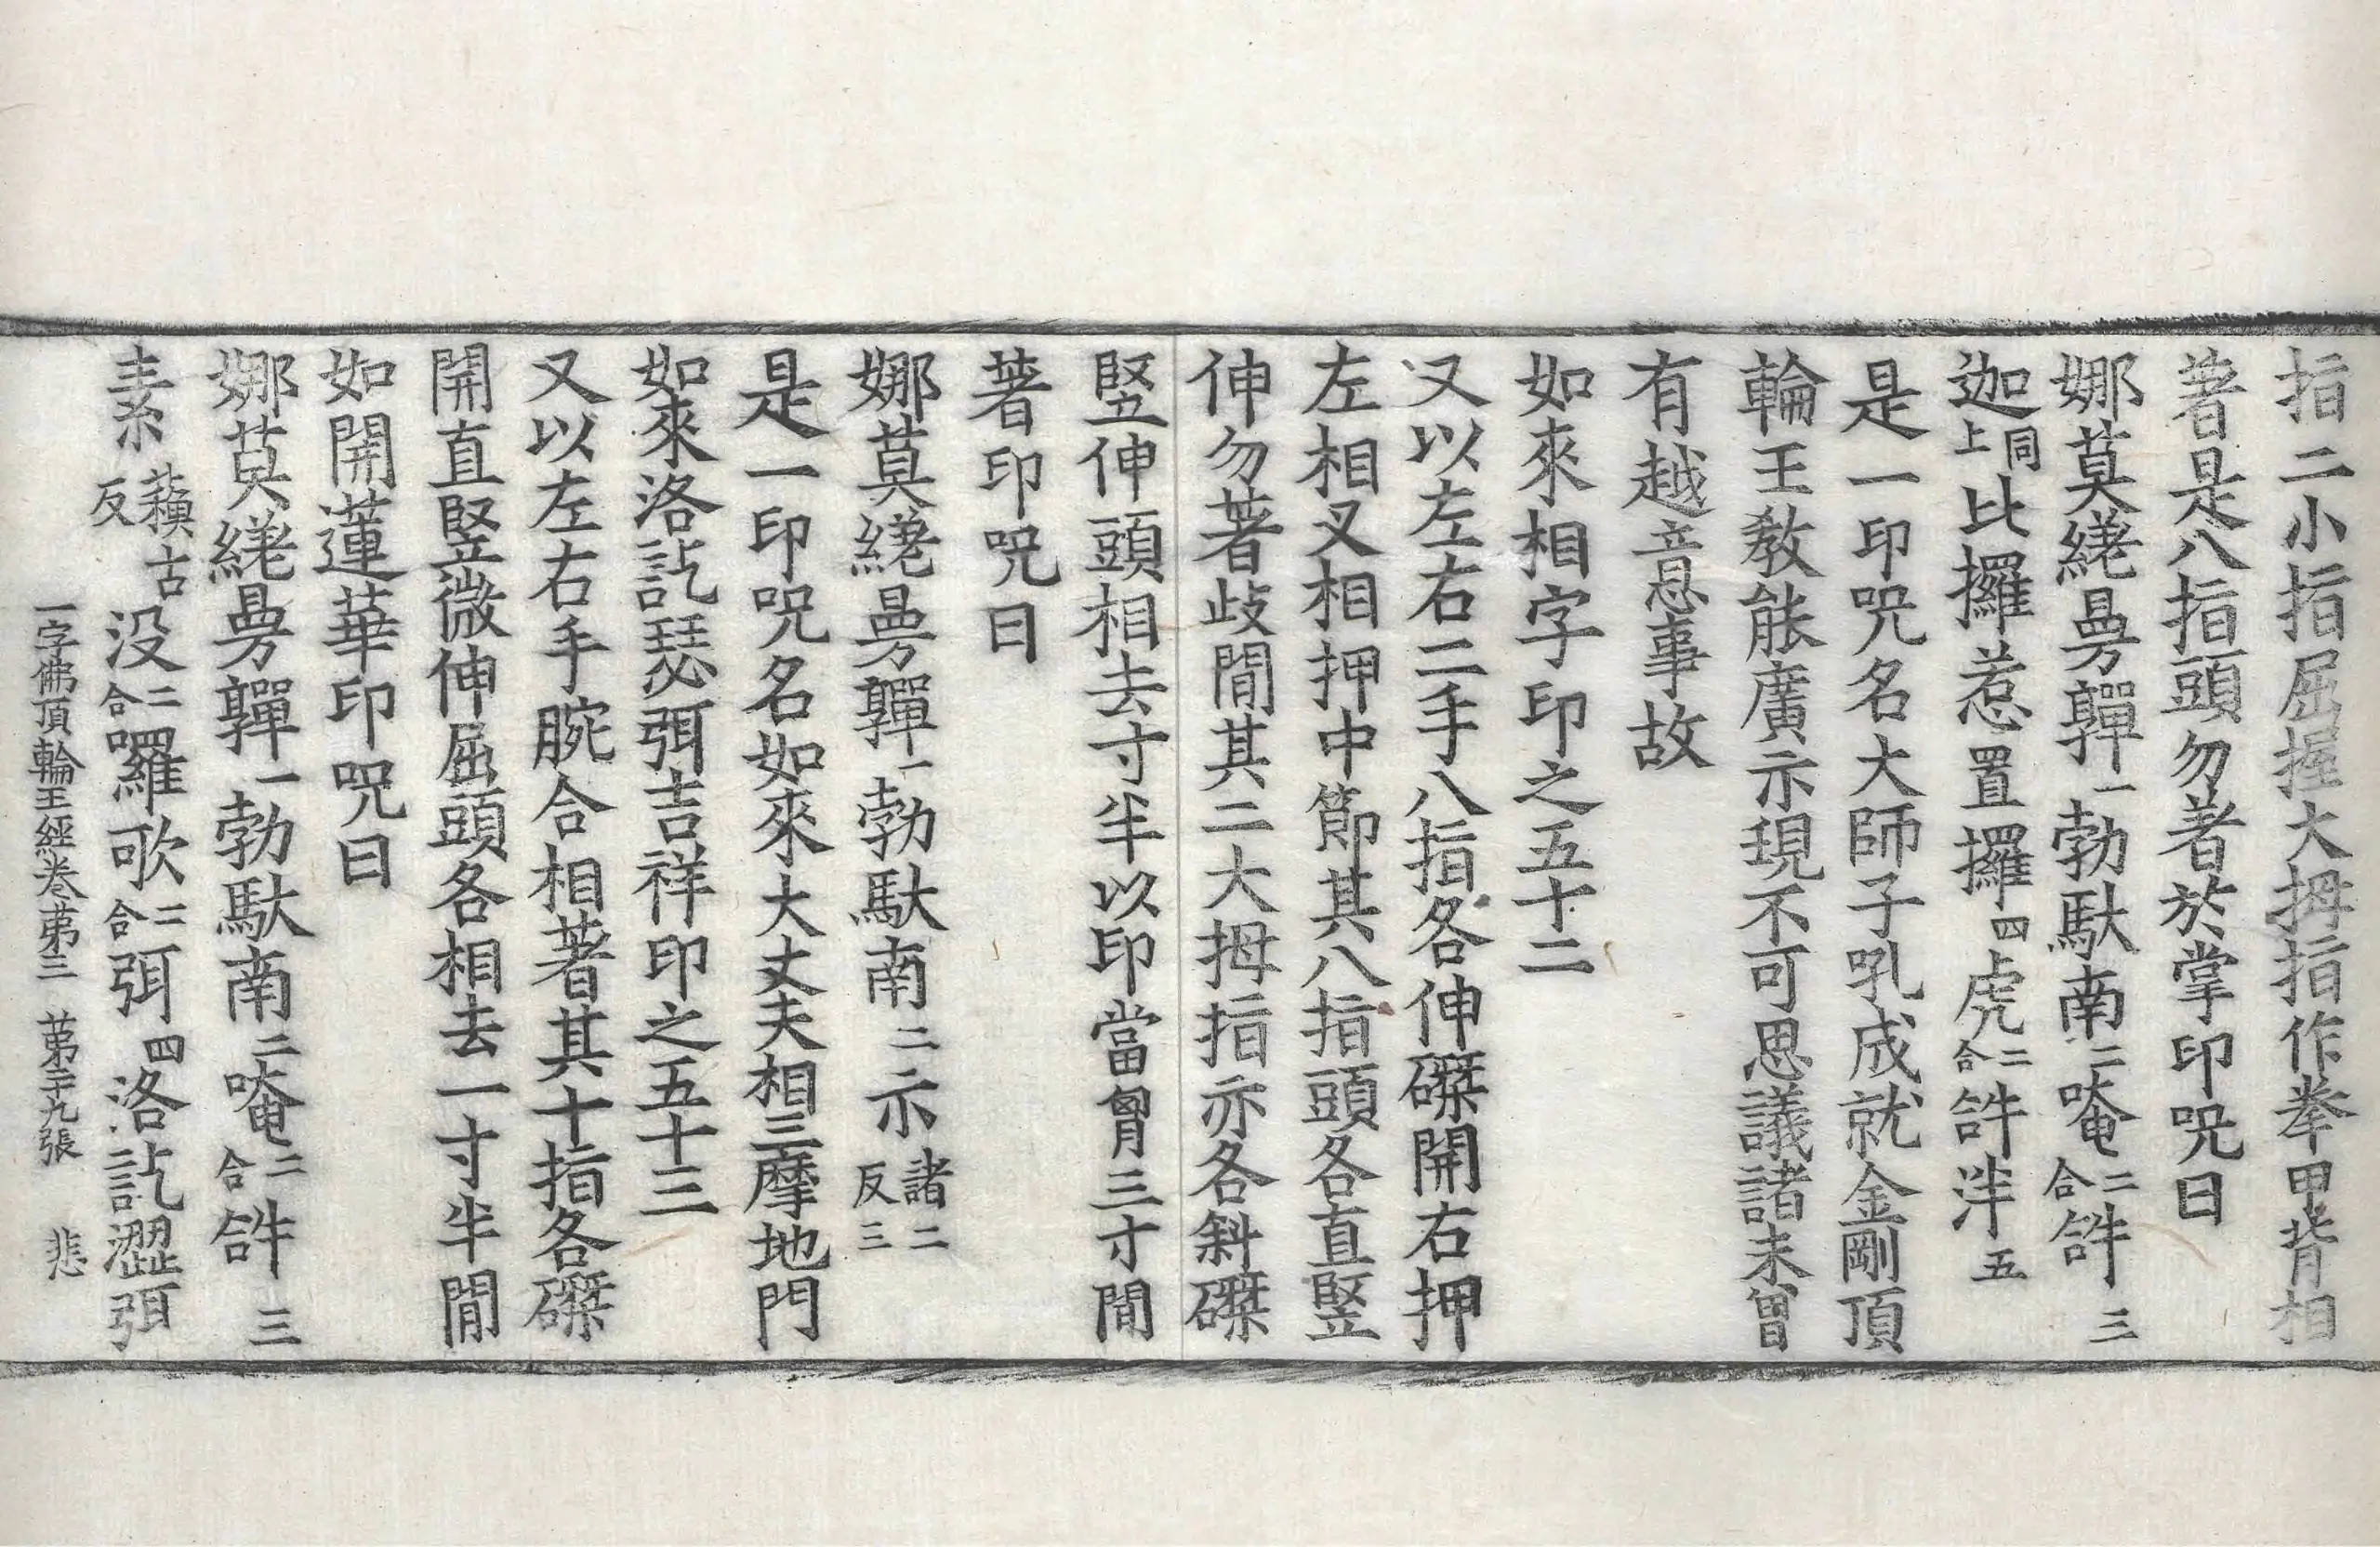 指二小指屈握大拇指作拳甲背相
著是八指頭勿著於掌印呪曰
娜莫繣曼㚲勃馱南二唵二合𤙖三
迦同上比攞惹置攞四虎二合𤙖泮五
是一印呪名大師子吼成就金剛頂
輪王教能廣示現不可思議諸未曾
有越意事故
如來相字印之五十二
又以左右二手八指各伸磔開右押
左相叉相押中節其八指頭各直豎
伸勿著歧間其二大拇指亦各斜磔
豎伸頭相去寸半以印當胷三寸間
著印呪曰
娜莫曼一勃馱南二示諸二反三
是一印呪名如來大丈夫相三摩地門
如來洛訖瑟弭吉祥印之五十三
又以左右手腕合相著其十指各磔
開直豎微伸屈頭各相去一寸半間
如開蓮華印呪曰
娜莫曼一勃馱南二唵二合𤙖三
素蘓古反没二合囉歌二合弭四洛訖澀弭
一字佛頂輪王經卷第三 第二十九張 悲